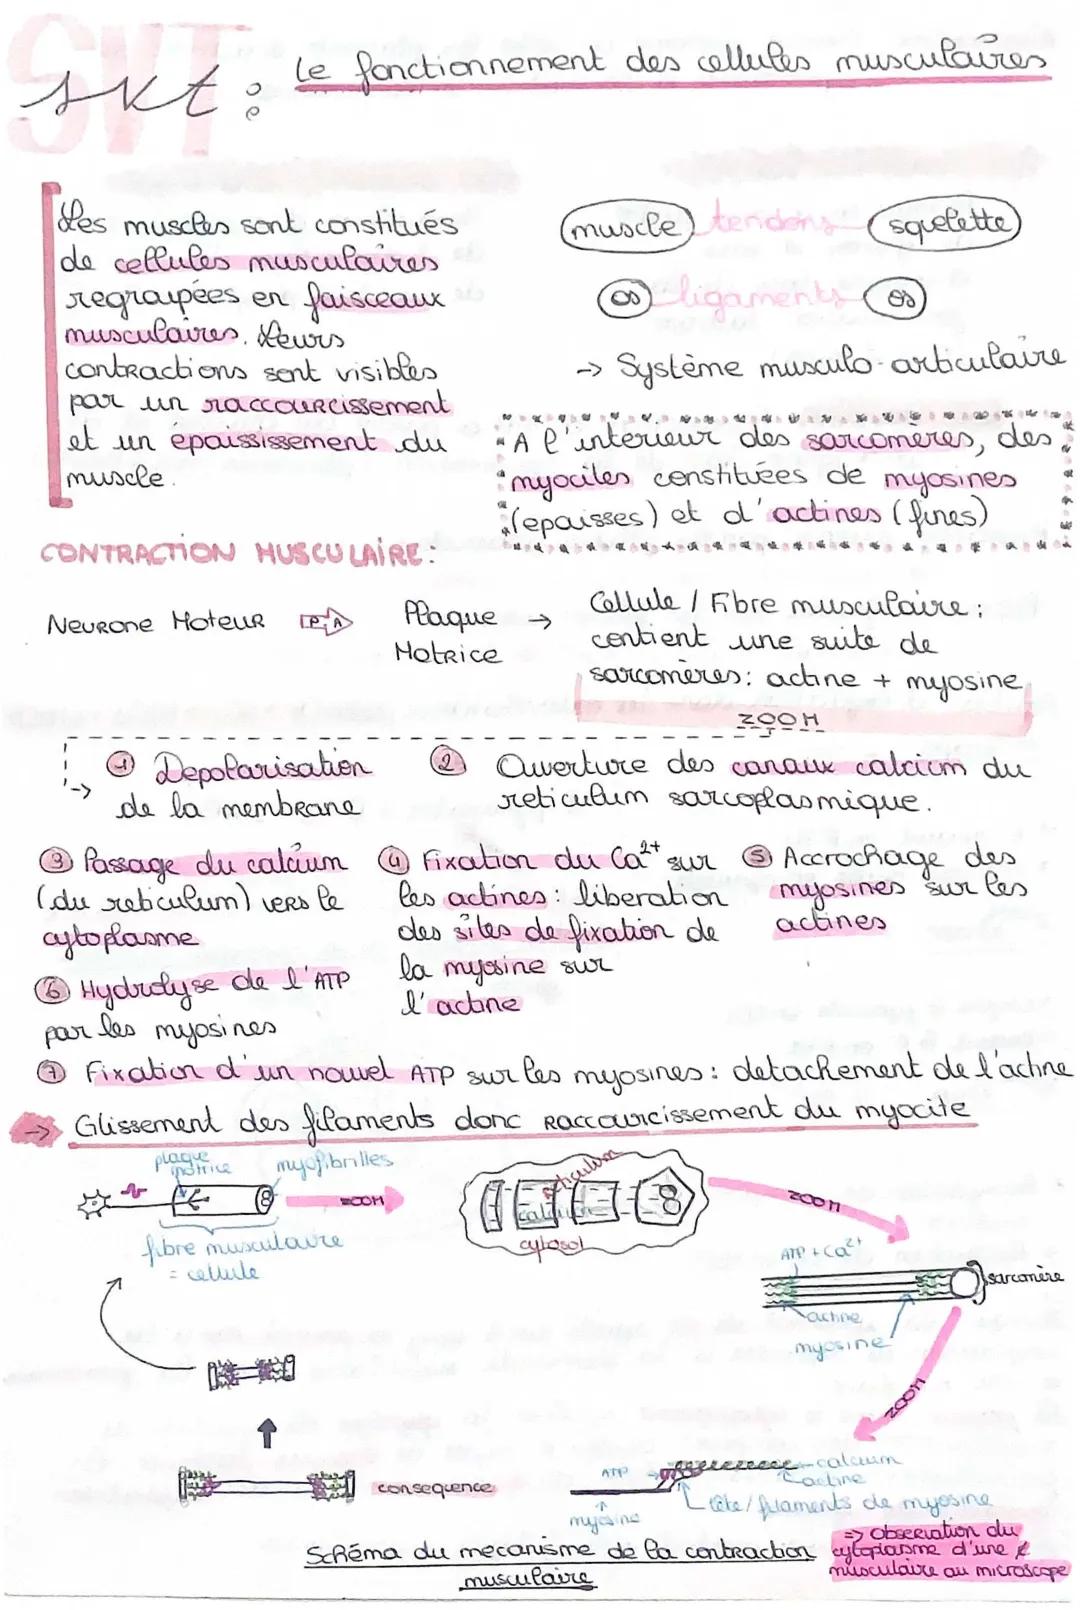 SVT
svt : Le fonctionnement des cellules musculaires
Les muscles sont constitués
de cellules musculaires
regroupées en faisceaux
musculaires. Leurs
contractions sont visibles
par un raccourcissement
et un epaississement du
muscle.
muscle tendons squelette
os ligaments os
-> Système musculo-articulaire
A l'intérieur des sarcomères, des
myocites constituées de myosines
(epaisses) et d'actines (fines)
CONTRACTION MUSCULAIRE:
Neurone Moteur P.A Plaque Motrice ->
Cellule / Fibre musculaire:
contient une suite de
sarcomères: actine + myosine
ZOOM
-> 1 Depolarisation
de la membrane
2 Ouverture des canaux calcium du
reticulum sarcoplasmique.
3 Passage du calcium
(du reticulum) vers le
cytoplasme
4 Fixation du Ca2+ sur
les actines: liberation
des sites de fixation de
la myosine sur
l'actine
5 Accrochage des
myosines sur les
actines
6 Hydrolyse de l'ATP
par les myosines
7 Fixation d'un nouvel ATP sur les myosines: detachement de l'actine
-> Glissement des filaments donc Raccourcissement du myocite
plaque
motrice
myofibrilles
ZOOM
fibre musculaire
= cellule
reticulum
calcium
cytosol
ZOOM
ATP + Ca2+
sarcomère
actine
myosine
ZOOM
consequence
ATP
calcium
actine
myosine
tête/filaments de myosine
Schéma du mecanisme de la contraction
musculaire
=> Observation du
cytoplasme d'une
musculaire au microscope